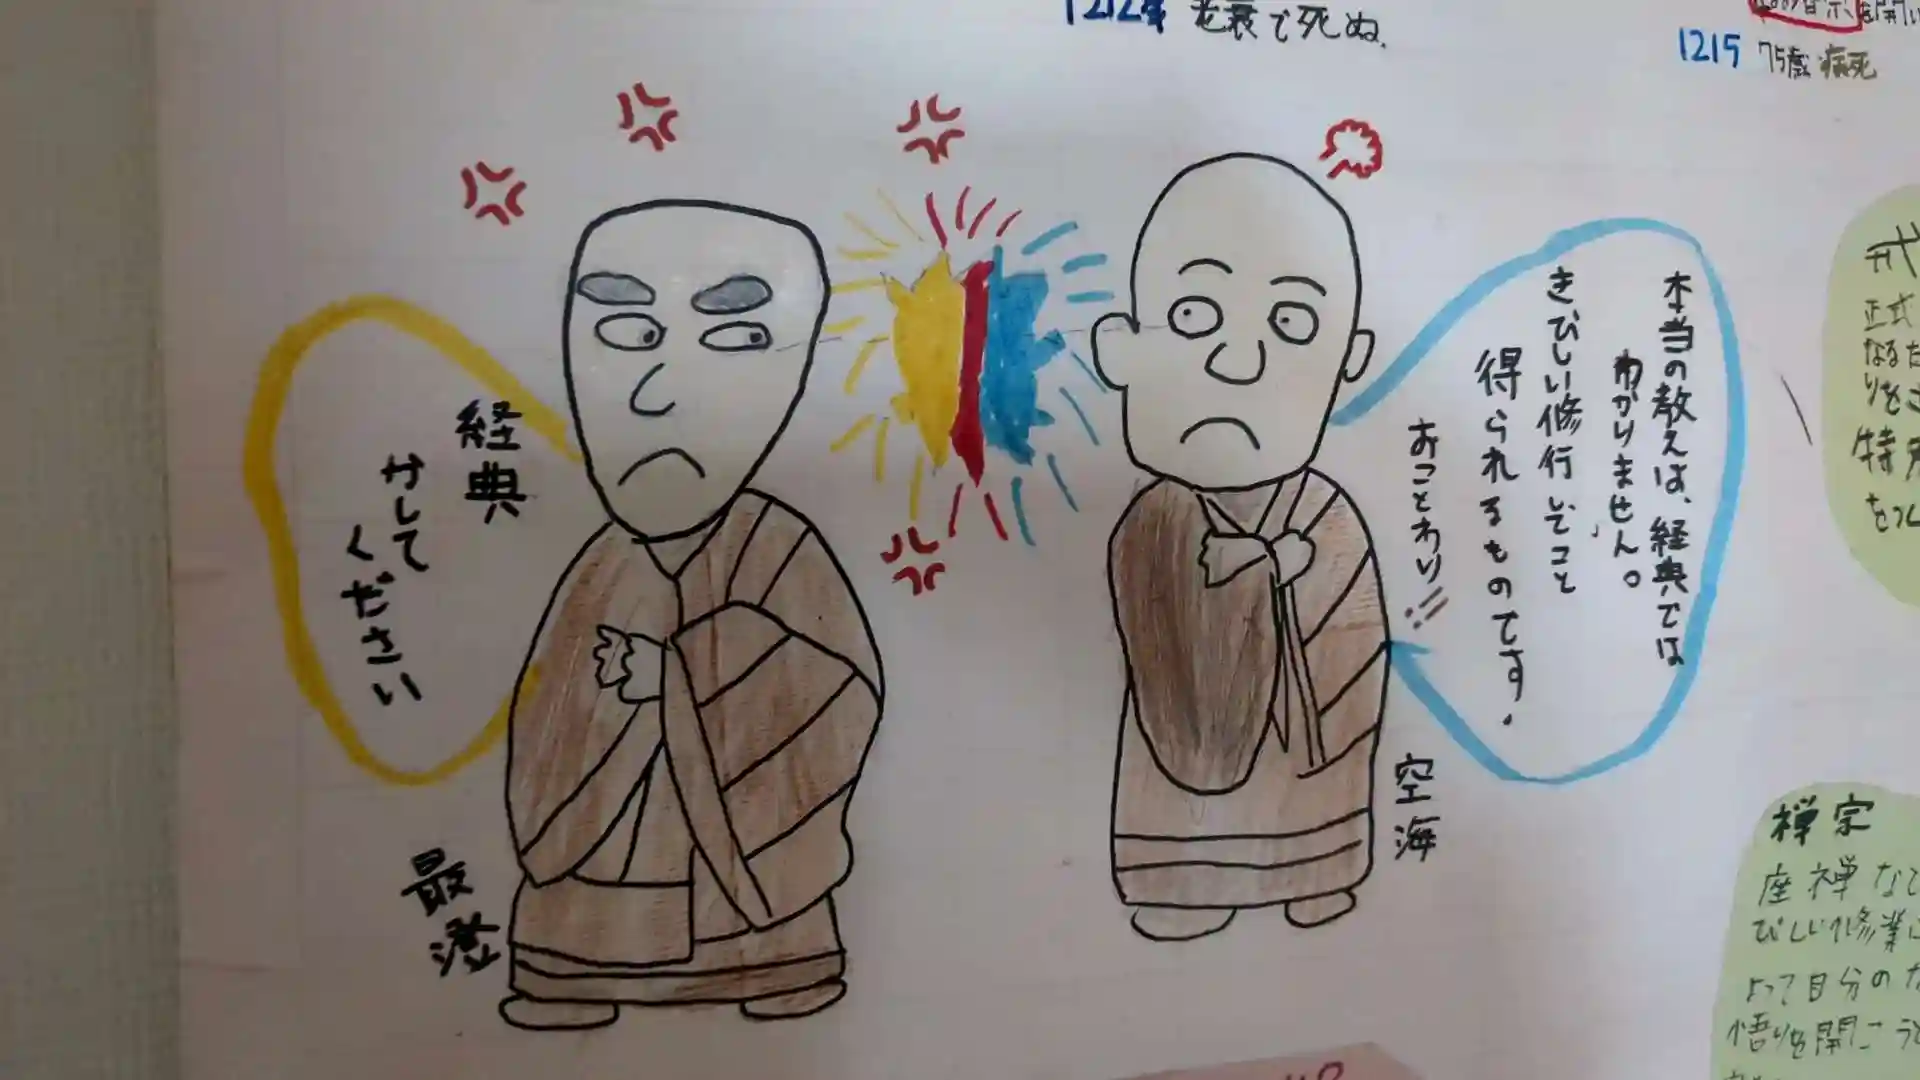 1212年 老衰で死ぬ.
1215 75歳 病死
経典
かして
ください
最澄
本当の教えは、経典では
わかりません。
きびしい修行でこと
得られるものです.
おことわり!!
空海
正式
なるた
りをさ
禅宗
座禅など
びしい修業に
よって自分の
悟りを開こうと